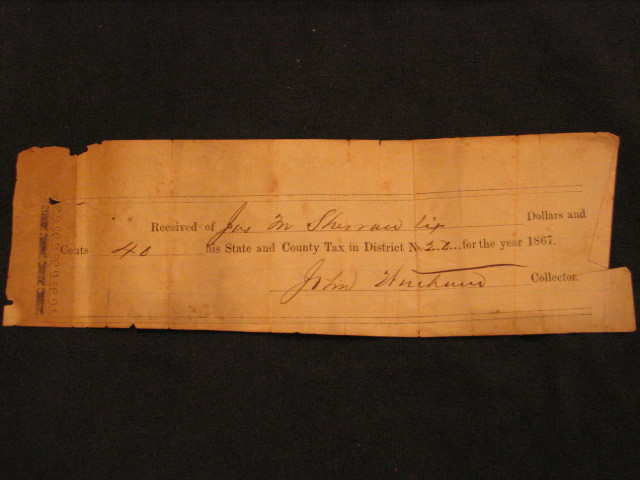 Received of Jas M Sherraw six Dollars and
Cents 40 his State and County Tax in District No. 20 for the year 1867.
John Collector.